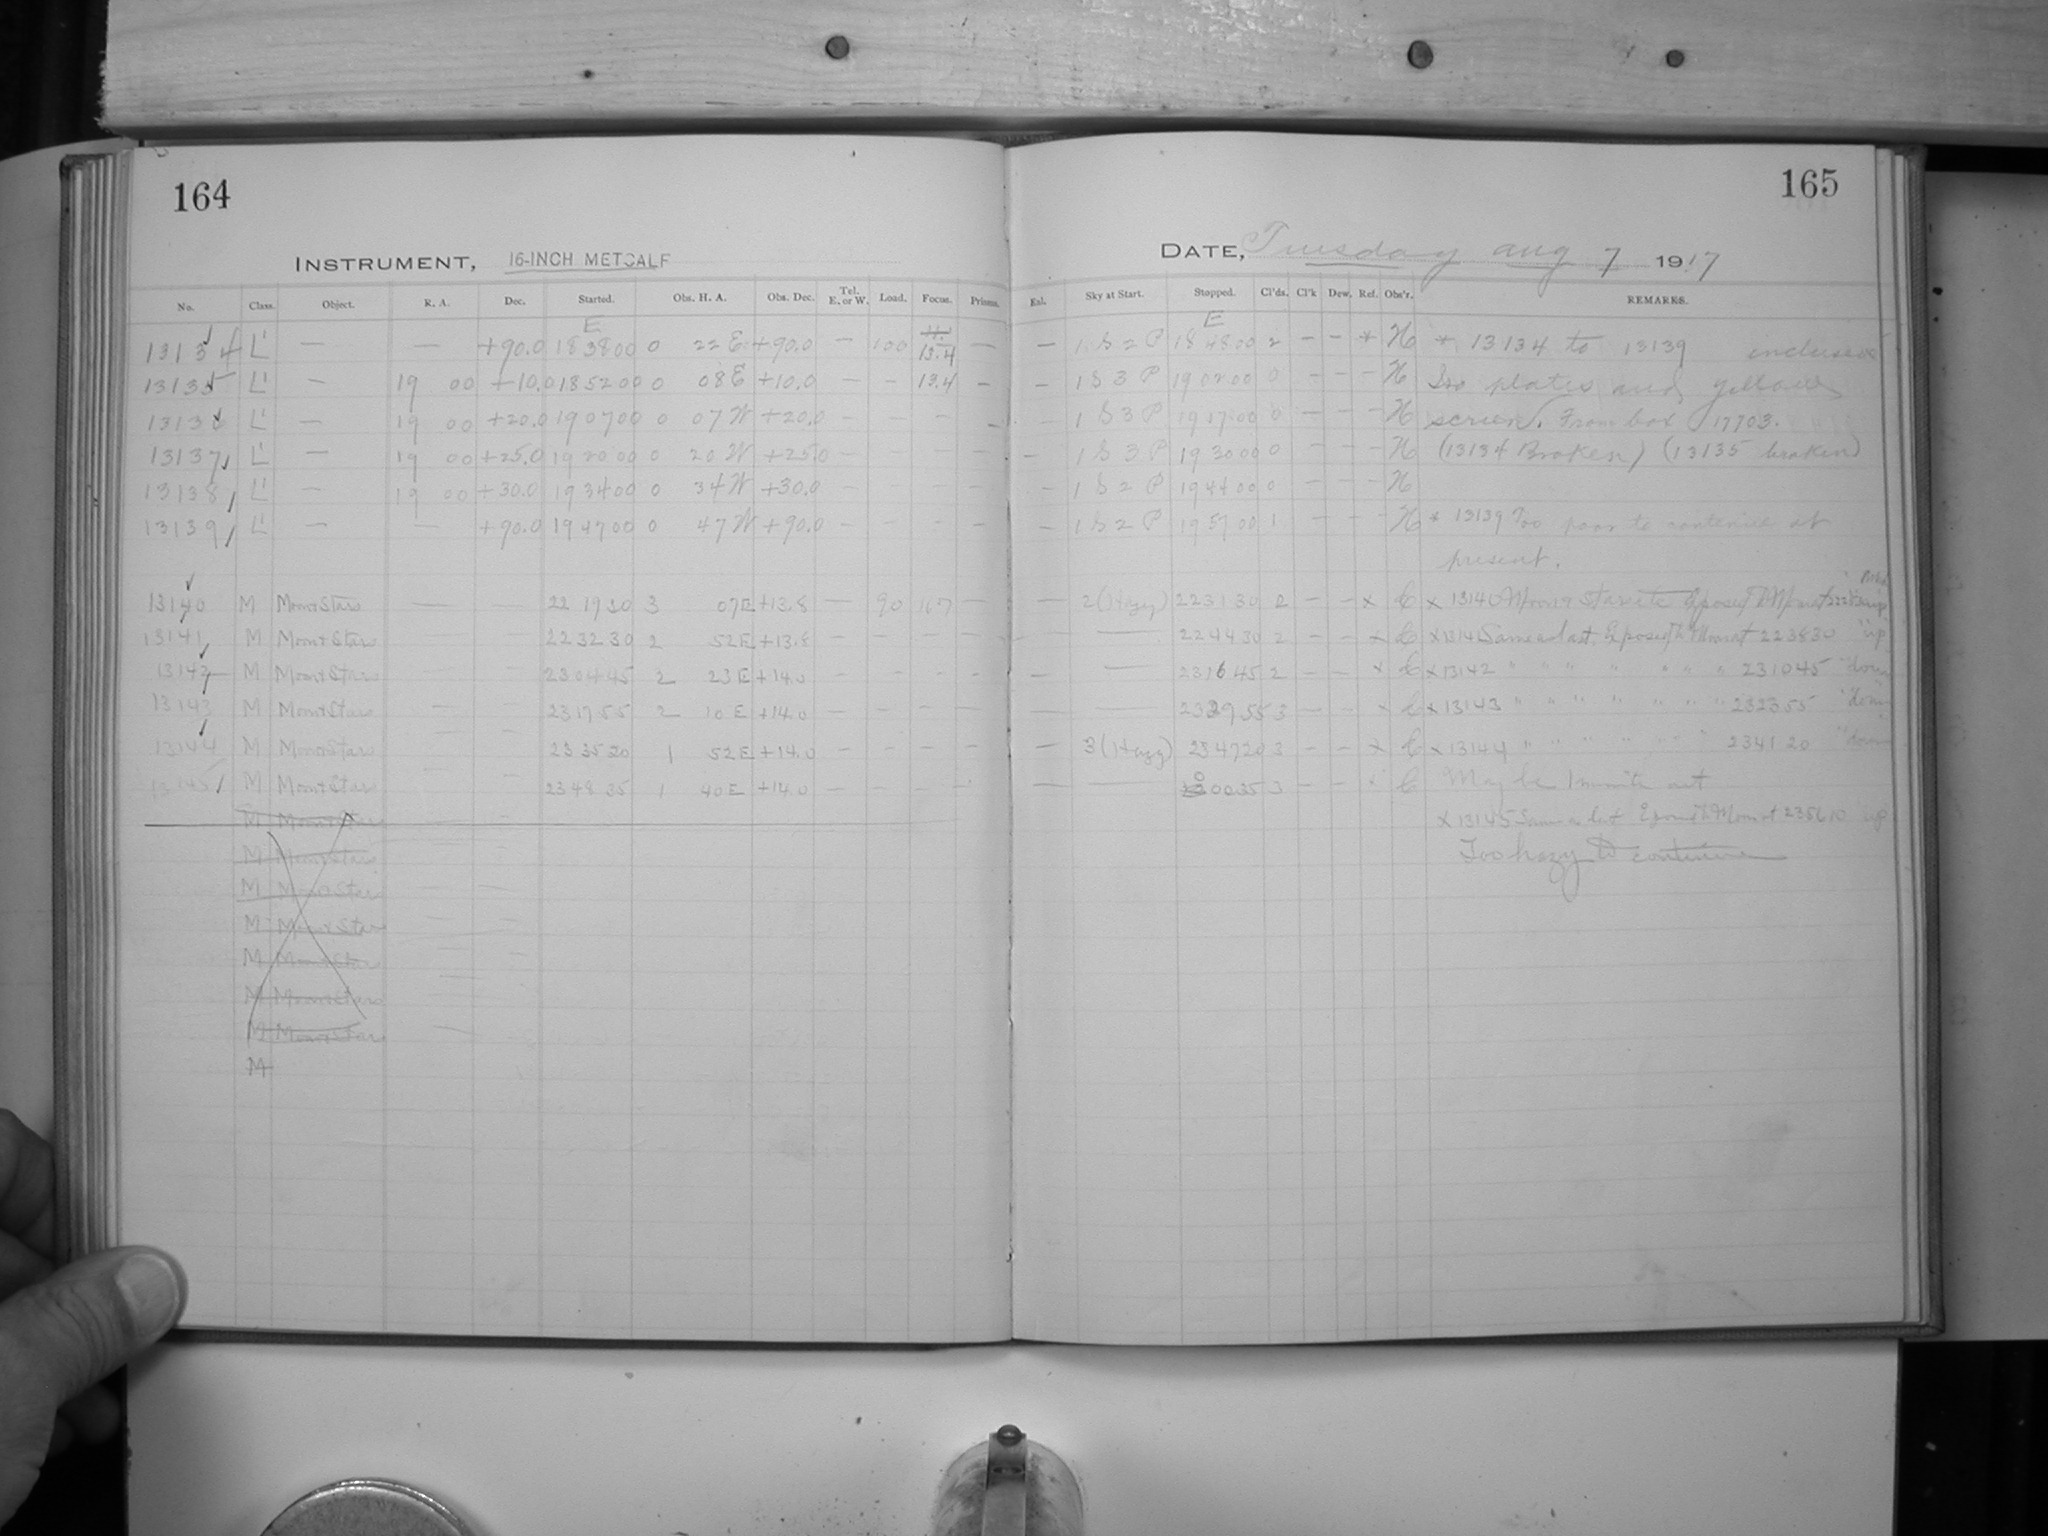 164
165
INSTRUMENT, 16-INCH METCALF
DATE, Tuesday Aug 7 1917
No. Class. Object. R. A. Dec. Started. Obs. H. A. Obs. Dec. Tel. E. or W. Load. Focus. Prisms. Eal. Sky at Start. Stopped. Cl'ds. Cl'k Dew. Ref. Obs'r. REMARKS.
E E
13134 L' — — +90.0 183800 0 22 E +90.0 — 100 13.4 — — 1 S 2 P 184800 2 — — * H * 13134 to 13139 inclusive
13135 L' — 19 00 +10.0 185200 0 08 E +10.0 — — 13.4 — — 1 S 3 P 190200 0 — — — H Iso plates and yellow
13136 L' — 19 00 +20.0 190700 0 07 W +20.0 — — — — — 1 S 3 P 191700 0 — — — H screen. From box 17703.
13137 L' — 19 00 +25.0 192000 0 20 W +25.0 — — — — — 1 S 3 P 193000 0 — — — H (13134 Broken) (13135 broken)
13138 L' — 19 00 +30.0 193400 0 34 W +30.0 — — — — — 1 S 2 P 194400 0 — — — H
13139 L' — — +90.0 194700 0 47 W +90.0 — — — — — 1 S 2 P 195700 1 — — — H * 13139 Too poor to continue at
present.
13140 M Moon & Stars — — 22 19 30 3 07 E +13.8 — 90 — — 2 (Hazy) 223130 2 — — x C x 13140 Moon & Stars Exposed Moon at
13141 M Moon & Stars — — 223230 2 52 E +13.8 — — — — — — 224430 2 — — x C x 13141 Same as last. Exposed Moon at 223830 "up
13142 M Moon & Stars 230445 2 23 E +14.0 — — — — — — 231645 2 — — x C x 13142 " " " " " " " 231045 "down
13143 M Moon & Stars — — 231755 2 10 E +14.0 — — — — — — 232955 3 — — x C x 13143 " " " " " " " 232355 "down
13144 M Moon & Stars — — 233520 1 52 E +14.0 — — — — — 3 (Hazy) 234720 3 — — x C x 13144 " " " " " " " 234120 "down
13145 M Moon & Stars — — 234835 1 40 E +14.0 — — — — — — 0035 3 — — x C May be 1 minute out
M Moon & Stars — — x 13145 Same as last Exposed Moon at 235610 up
M Moon & Stars Too hazy to continue
M Moon & Stars — —
M Moon & Stars — —
M Moon & Stars — —
M Moon & Stars
M Moon & Stars —
M